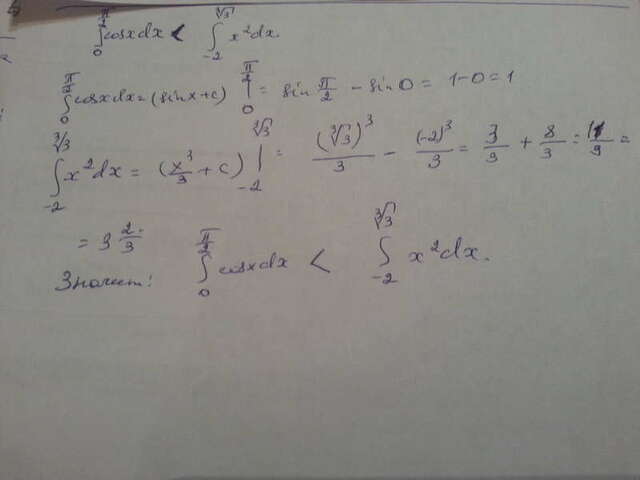 ∫₀^{π/2} cosxdx < ∫₋₂^{∛3} x²dx.
∫₀^{π/2} cosxdx = (sinx+c) |₀^{π/2} = sin π/2 − sin 0 = 1−0 = 1
∫₋₂^{∛3} x²dx = (x³/3 + c) |₋₂^{∛3} = (∛3)³/3 − (−2)³/3 = 3/3 + 8/3 = 11/3 =
= 3 2/3.
Значит: ∫₀^{π/2} cosxdx < ∫₋₂^{∛3} x²dx.